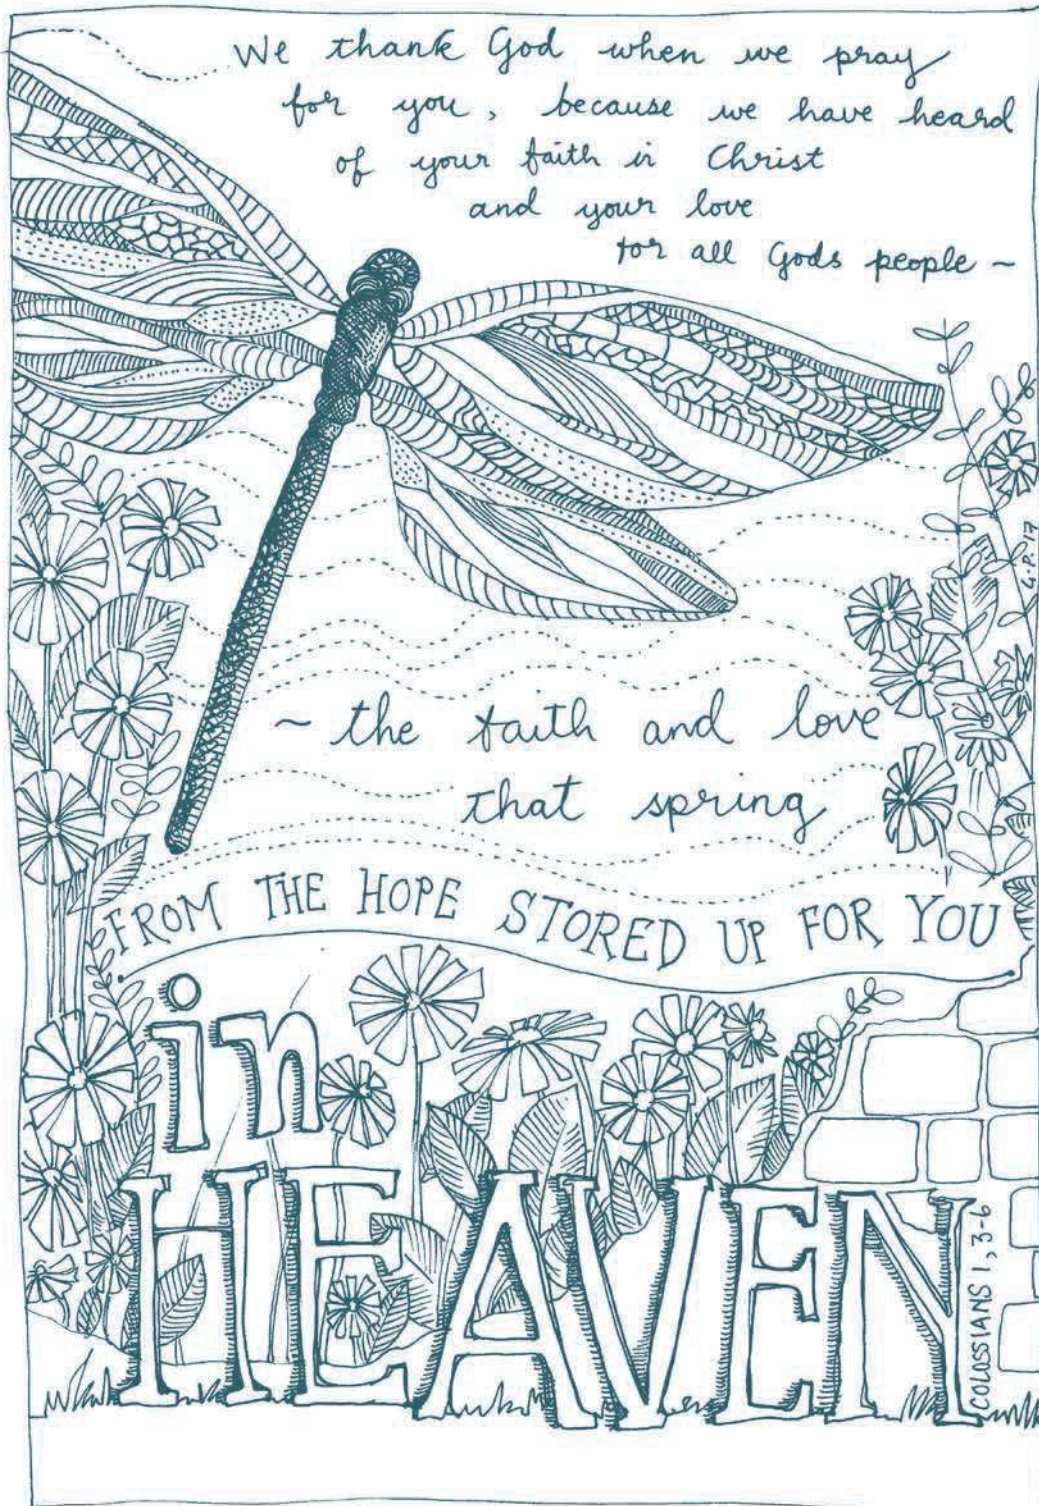 We thank God when we pray
for you, because we have heard
of your faith in Christ
and your love
for all Gods people ~
~ the faith and love
that spring
FROM THE HOPE STORED UP FOR YOU
in
HEAVEN
COLOSSIANS 1, 3-6
G.P. 17